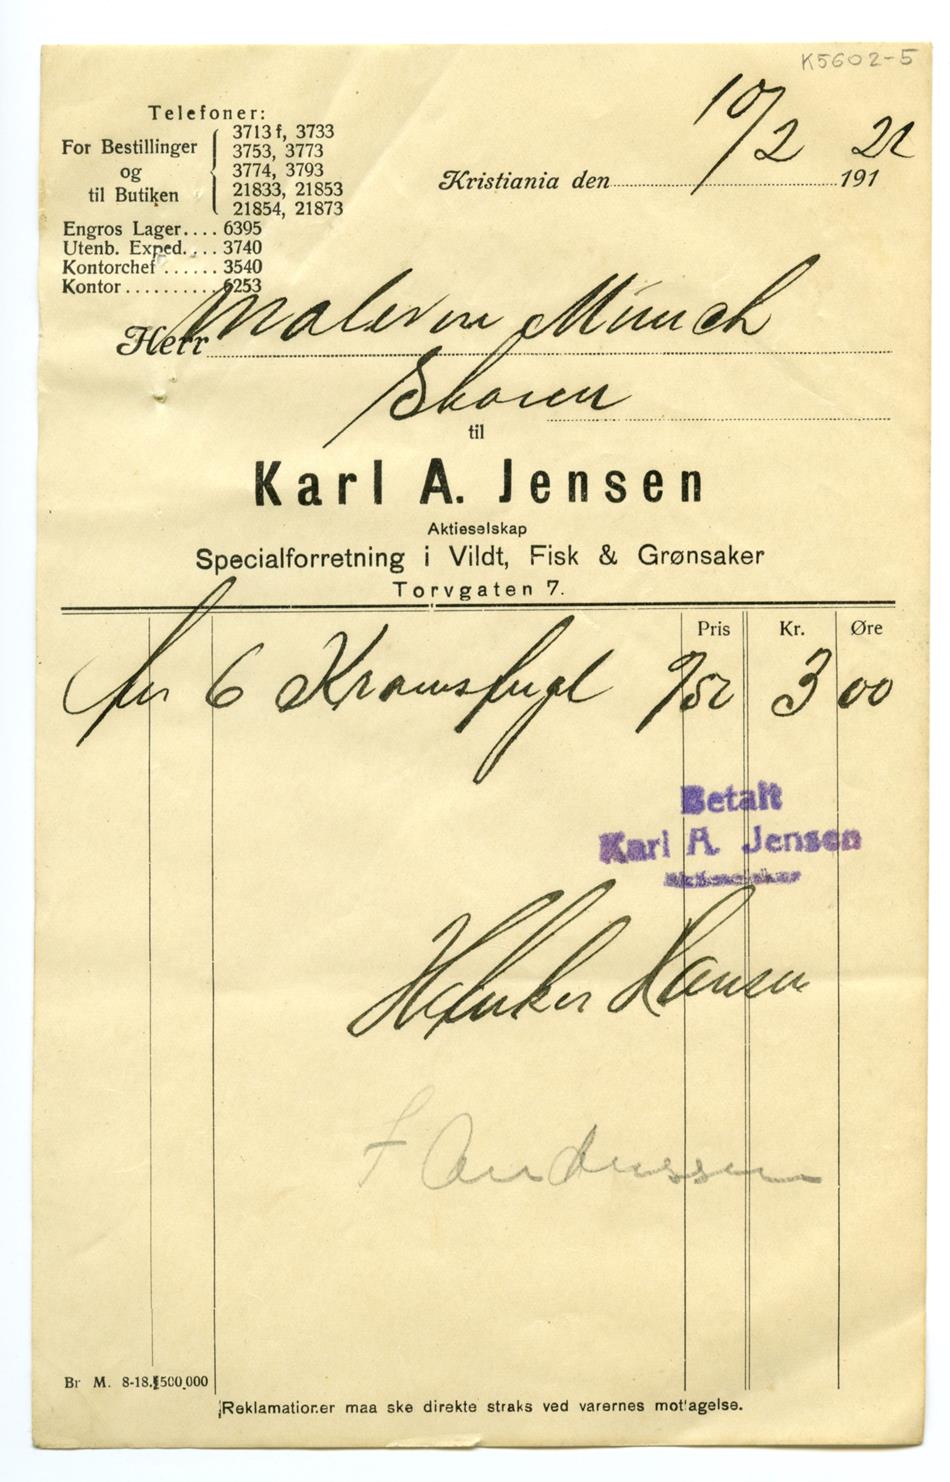 K5602-5
Telefoner:
For Bestillinger og til Butiken
3713 f, 3733
3753, 3773
3774, 3793
21833, 21853
21854, 21873
Engros Lager.... 6395
Utenb. Exped.... 3740
Kontorchef ...... 3540
Kontor.......... 6253
Kristiania den 10/2 191 22
Herr Maleren Munch
Skøien
til
Karl A. Jensen
Aktieselskap
Specialforretning i Vildt, Fisk & Grønsaker
Torvgaten 7.
Pris Kr. Øre
6 Kramsfugl 3 00
Betalt
Karl A. Jensen
Aktieselskap
Hansen
F Anderssen
Br M. 8-18. 500,000
Reklamationer maa ske direkte straks ved varernes mottagelse.